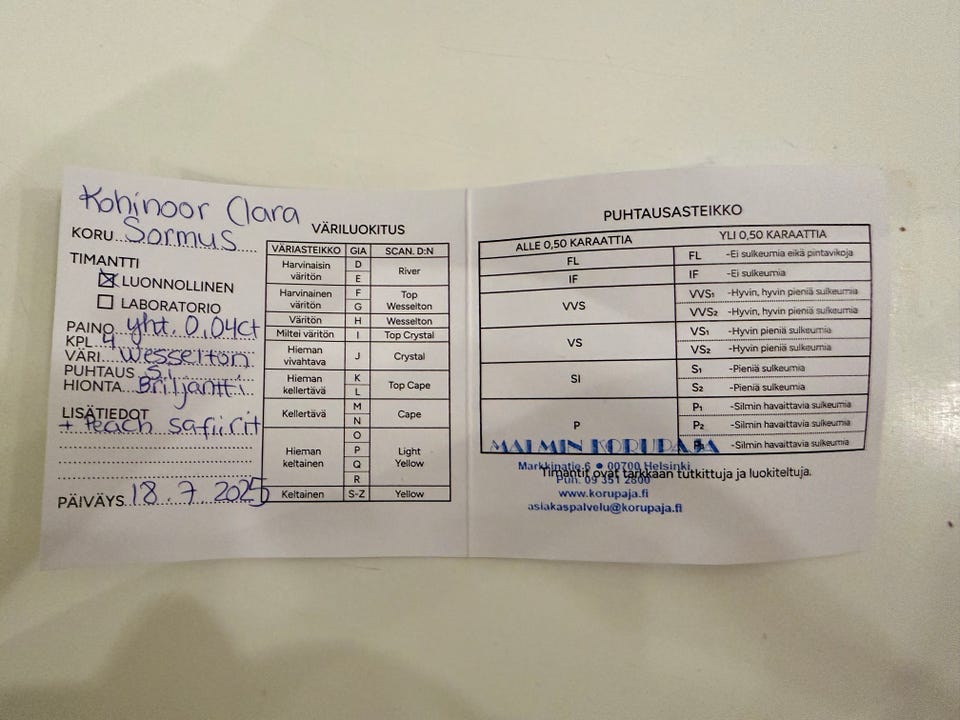 Kohinoor Clara
KORU Sormus
TIMANTTI
LUONNOLLINEN
LABORATORIO
PAINO yht. 0,04ct
KPL 4
VÄRI Wesselton
PUHTAUS Si
HIONTA Briljantti
LISÄTIEDOT
+ Peach safiirit
PÄIVÄYS 18.7 2025
VÄRILUOKITUS
VÄRIASTEIKKO GIA SCAN. D:N
Harvinaisin väritön D E River
Harvinainen väritön F G Top Wesselton
Väritön H Wesselton
Miltei väritön I Top Crystal
Hieman vivahtava J Crystal
Hieman kellertävä K L Top Cape
Kellertävä M N Cape
Hieman keltainen O P Q R Light Yellow
Keltainen S-Z Yellow
PUHTAUSASTEIKKO
ALLE 0,50 KARAATTIA YLI 0,50 KARAATTIA
FL FL -Ei sulkeumia eikä pintavikoja
IF IF -Ei sulkeumia
VVS VVS1 -Hyvin, hyvin pieniä sulkeumia
VVS2 -Hyvin, hyvin pieniä sulkeumia
VS VS1 -Hyvin pieniä sulkeumia
VS2 -Hyvin pieniä sulkeumia
SI S1 -Pieniä sulkeumia
S2 -Pieniä sulkeumia
P P1 -Silmin havaittavia sulkeumia
P2 -Silmin havaittavia sulkeumia
-Silmin havaittavia sulkeumia
MALMIN KORUPAJA
Markkinatie 6 • 00700 Helsinki
Timantit ovat tarkkaan tutkittuja ja luokiteltuja.
Puh. 09 351 2800
www.korupaja.fi
asiakaspalvelu@korupaja.fi